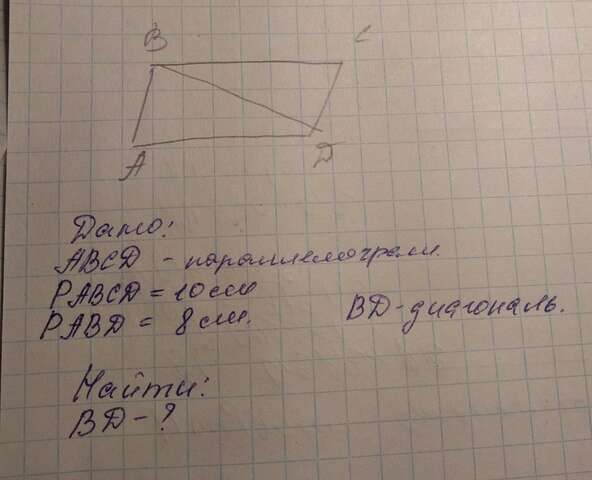 B C
A D
Дано:
ABCD - параллелограмм.
PABCD = 10см
PABD = 8см. BD-диагональ.
Найти:
BD-?